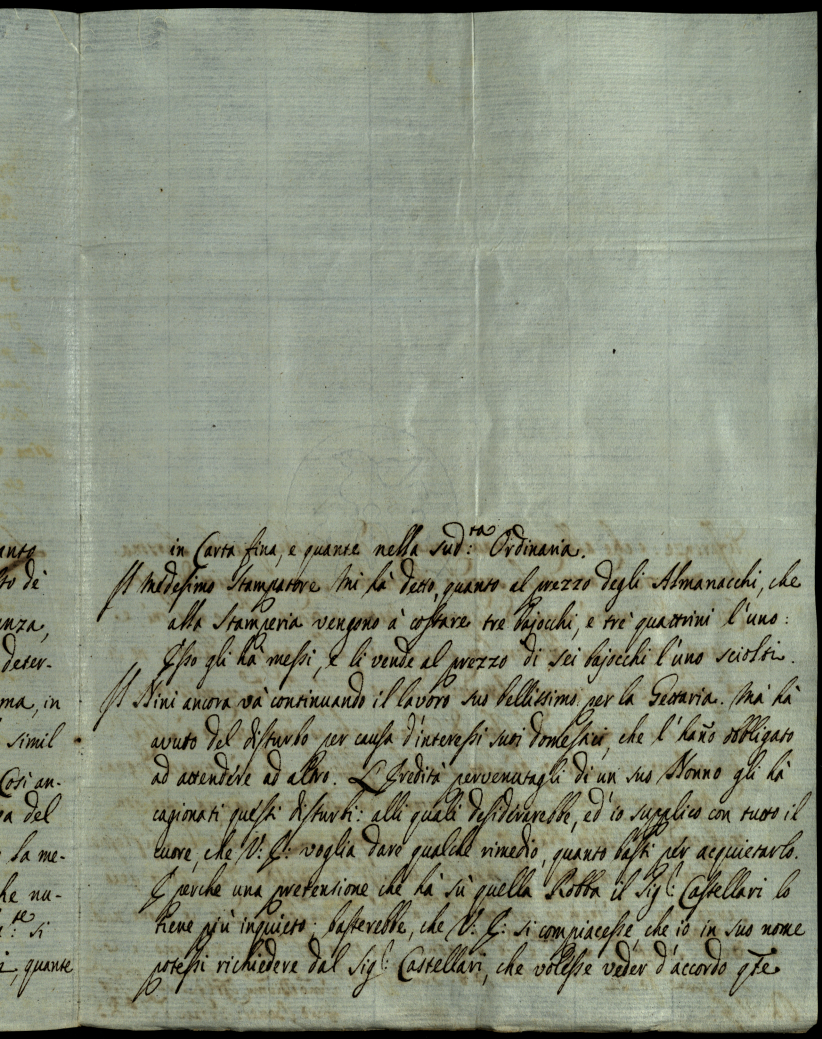 anto
to de
anza,
deter-
ma, in
simil
Così an-
pa del
la me-
he nu-
te si
i, quante
in Carta fina, e quante nella sud:ta Ordinaria.
Il medesimo Stampatore mi hà detto, quanto al prezzo degli Almanacchi, che
alla Stamperia vengono à costare tre bajocchi, e trè quattrini l'uno:
Esso gli hà messi, e li vende al prezzo di sei bajocchi l'uno sciolti.
Il Nini ancora và continuando il lavoro suo bellissimo per la Gessaria. Mà hà
avuto del disturbo per causa d'interessi suoi domestici, che l'hañο obbligato
ad attendere ad altro. L'Eredità pervenutagli di un suo Nonno gli hà
cagionati questi disturbi: alli quali desiderarebbe, ed'io supplico con tutto il
cuore, che V: E: voglia dare qualche rimedio, quanto basti per acquietarlo.
E perche una pretensione che hà sù quella Robba il Sig: Castellari lo
tiene più inquieto; basterebbe, che V: E: si compiacesse, che io in suo nome
potessi richiedere dal Sig: Castellari, che volesse veder d'accordo qte